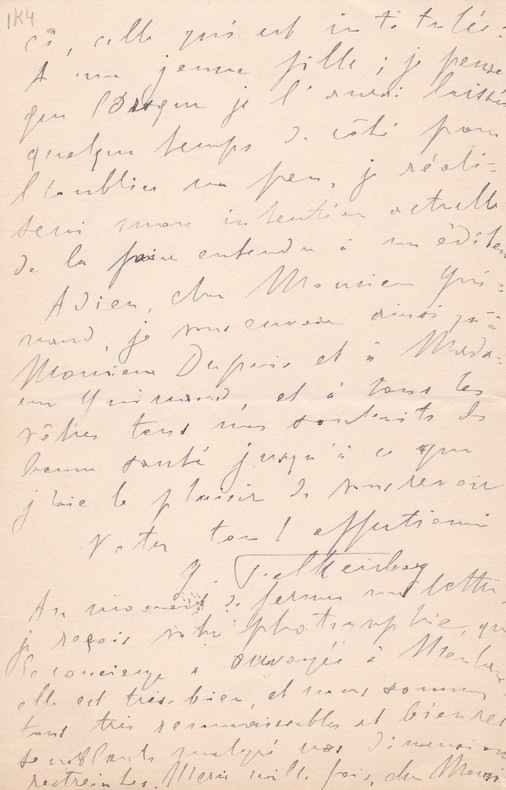 1K4
ci, celle qui est intitulée :
A une jeune fille ; je pense
que lorsque je l'aurai laissée
quelque temps de côté pour
l'oublier un peu, je réali-
serai mon intention actuelle
de la faire entendre à un éditeur
Adieu, cher Monsieur Gui-
mand, je vous envoie ainsi qu'à
Monsieur Dupuis et à Mada-
me et à tous les
vôtres tous mes souhaits de
bonne santé jusqu'à ce que
j'aie le plaisir de vous revoir
Votre tout affectionné
Au moment de fermer ma lettre,
je reçois votre photographie, que
le concierge a envoyée à
elle est très bien, et nous sommes
tous très reconnaissables et bien res-
semblants malgré vos dimensions
restreintes. Merci mille fois, cher Monsi